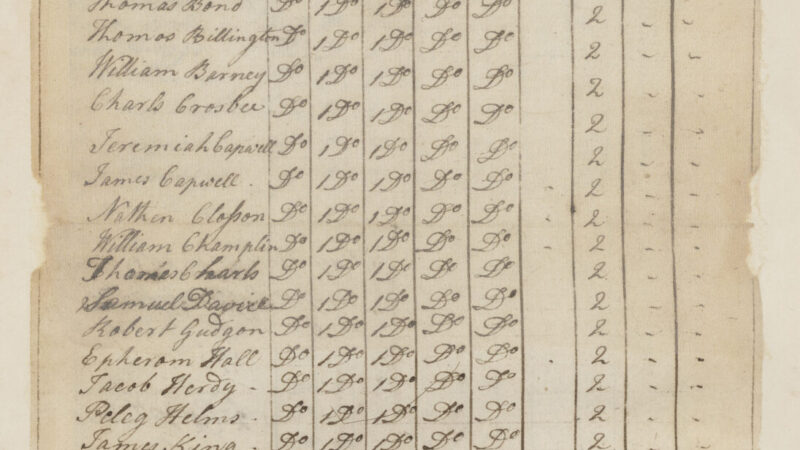 Thomas Bond Do 1 Do 1 Do Do Do 2 " "
Thomas Billington Do 1 Do 1 Do Do Do 2 " "
William Barney Do 1 Do 1 Do Do Do 2 " "
Charls Crosbee Do 1 Do 1 Do Do Do 2 " "
Jeremiah Capwell Do 1 Do 1 Do Do Do 2 " "
James Capwell . Do 1 Do 1 Do Do Do 2 " "
Nathen Closson Do 1 Do 1 Do Do Do 2 " "
William Champlin Do 1 Do 1 Do Do Do 2 " "
Thomas Charls Do 1 Do 1 Do Do Do 2 " "
Samuel Do 1 Do 1 Do Do Do 2 " "
Robert Gudgon Do 1 Do 1 Do Do Do 2 " "
Epherom Hall Do 1 Do 1 Do Do Do 2 " "
Jacob Herdy - Do 1 Do 1 Do Do Do 2 " "
Peleg Helms - Do 1 Do 1 Do Do Do 2 " "
James King - Do 1 Do 1 Do Do Do 2 " "